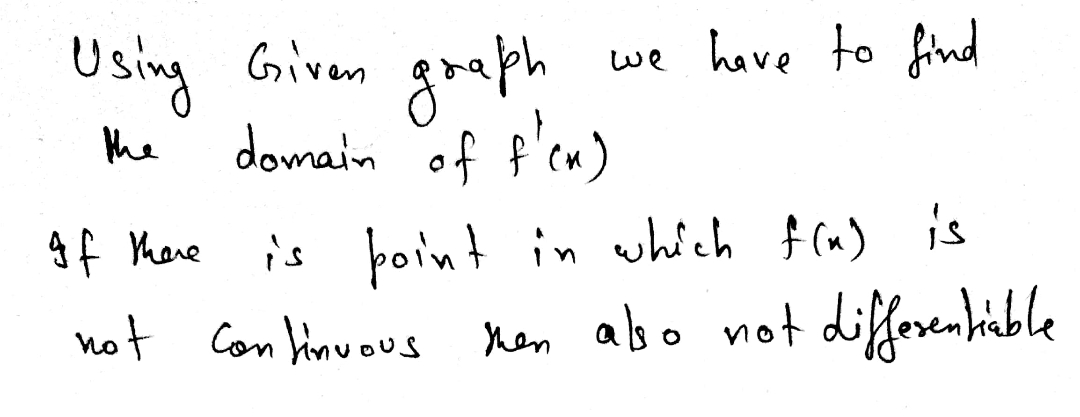 Using Given graph we have to find
the domain of f'(x)
If there is point in which f(x) is
not Continuous then also not differentiable